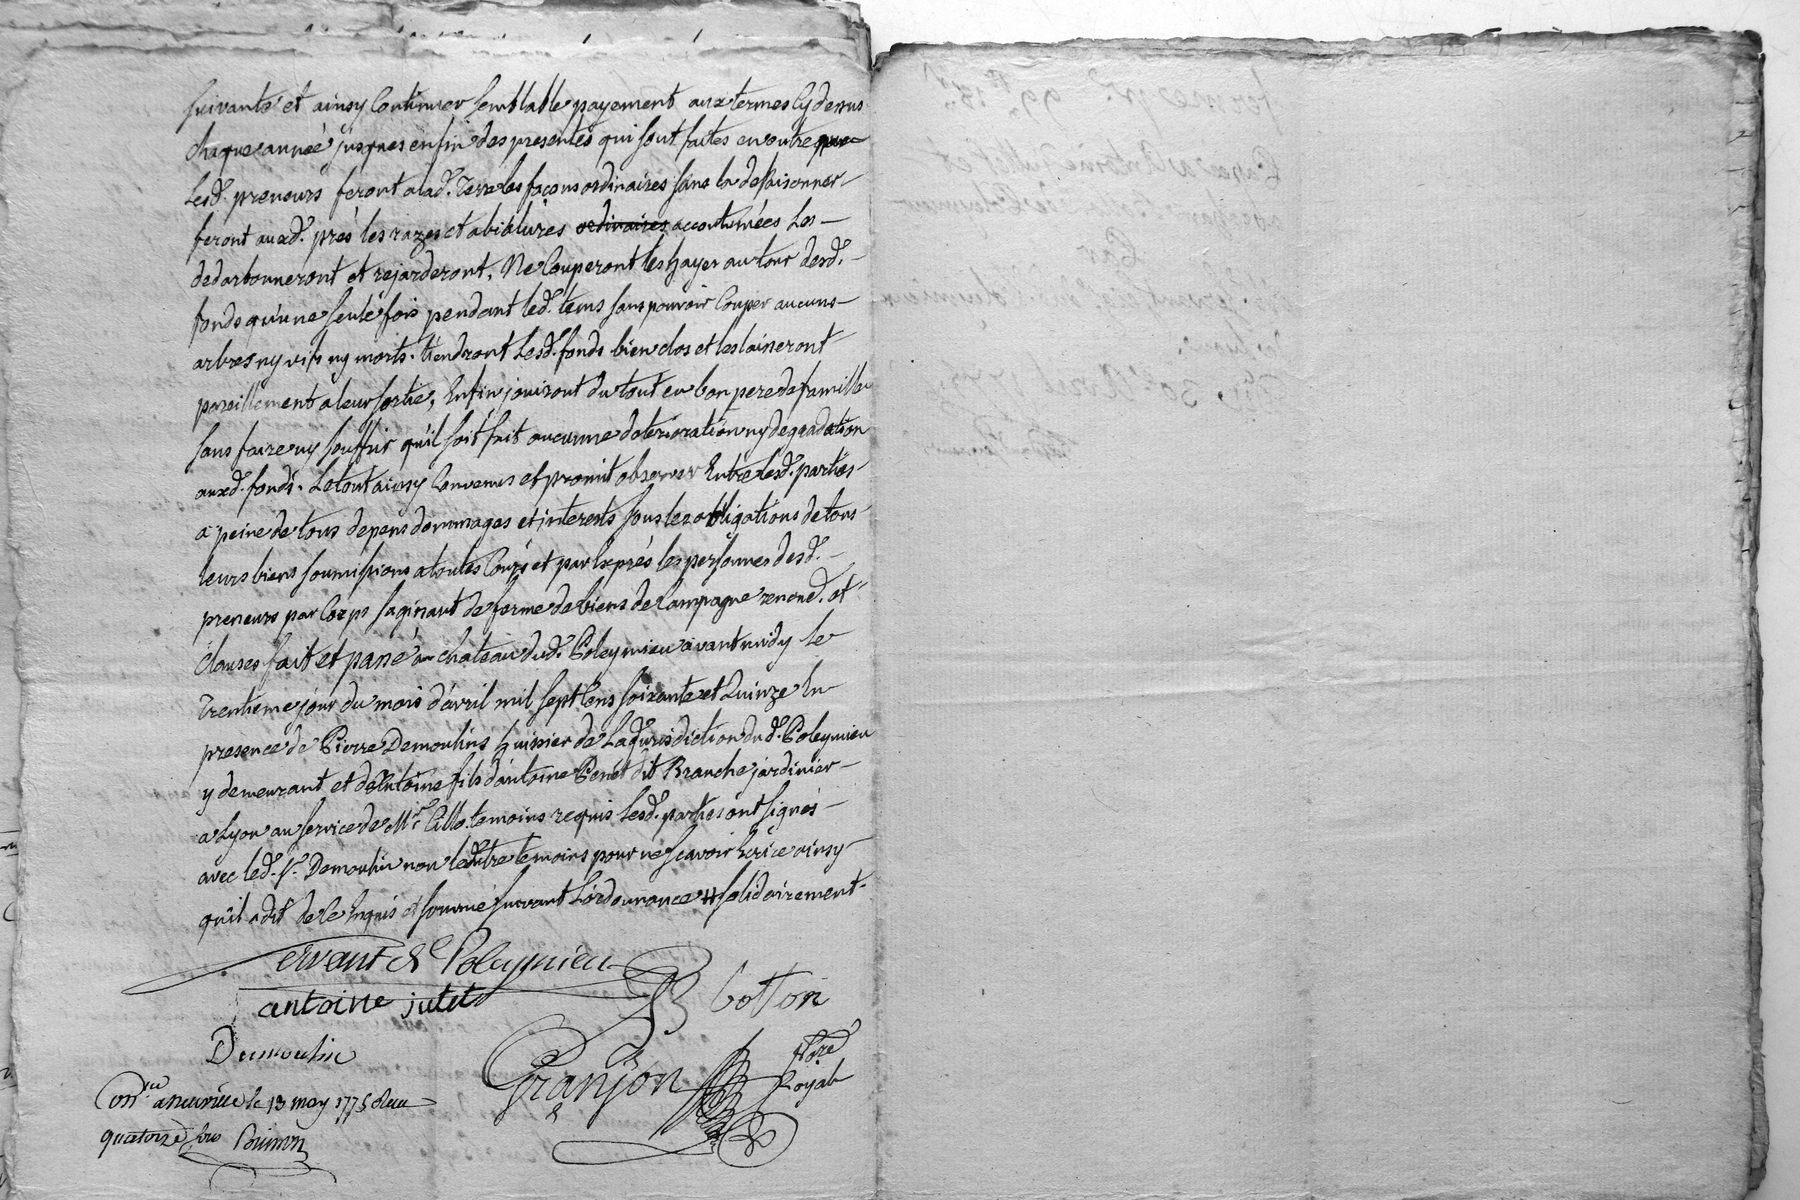 suivants et ainsy Continuer semblable payement aux termes Cy dessus
chaque année jusques enfin des presentes qui sont faites en outre que
Lesd. preneurs feront a lad. Terre les façons ordinaires sans la desaisonner
feront auxd. prés les razes et abiálures ordinaires accoutumées Les
dedarbonneront et rejarderont, Ne Couperont les hayes autour desd.
fonds qu'une seule fois pendant led. tems sans pouvoir Couper aucuns
arbres ny vifs ny morts. tiendront Lesd. fonds bien clos et les laisseront
pareillement a leur sortie, Enfin jouiront du tout en bon pere de famille
sans faire ny souffrir qu'il soit fait aucunne deterioration ny degradation
auxd. fonds. Le tout ainsy Convenus et promit observer Entre lesd. parties
a peine de tous depens dommages et interests sous les obligations de tous
leurs biens soumissions a toutes Cours et par Exprès les personnes desd.
preneurs par Corps sagissant de ferme de biens de Campagne renond. et
clauses fait et passé au chateau dud. Poleymieu avant midy le
trentieme jour du mois d'avril mil sept Cens soixante et Quinze En
presence de Pierre Demoulins huissier de Lad. Jurisdiction dud. Poleymieu
y demeurant et d'Antoine fils d'antoine Penet dit Branche jardinier
a Lyon au service de Mr. temoins requis Lesd. parties ont signés
avec led. sr. Demoulin non led. autre temoins pour ne scavoir Ecrire ainsy
qu'il a dit de ce Enquis et sommé suivant L'ordonnance # solidairement
Servant de Poleymieu
antoine jutet
Cotton
Demoulin
Granjon
Nore
Royal
Con.lé a neuville le 13 may 1775 Reçu
quatorze sous